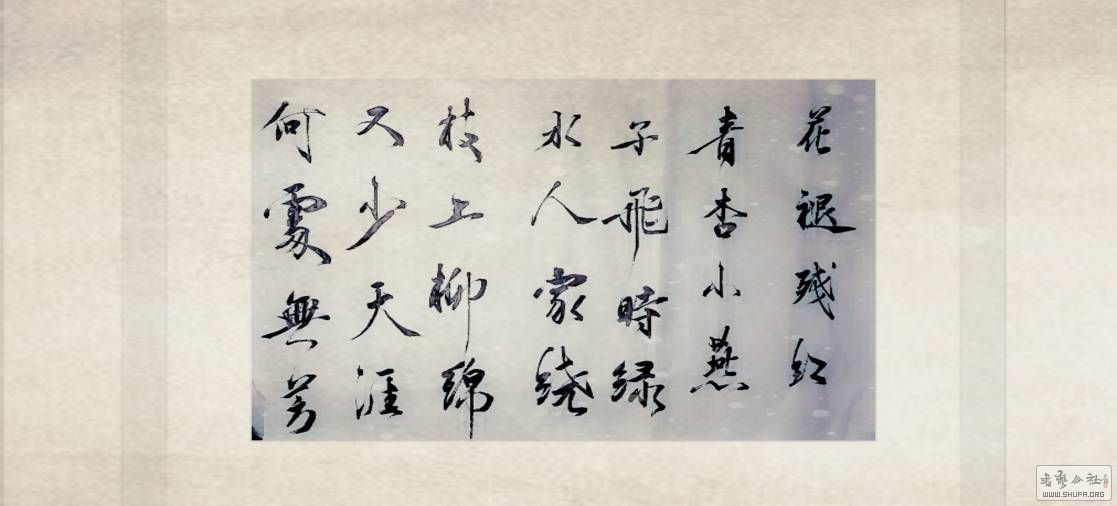 花褪残红
青杏小燕
子飛時绿
水人家绕
枝上柳绵
又少天涯
何處無芳
書藝公社
WWW.SHUFA.ORG